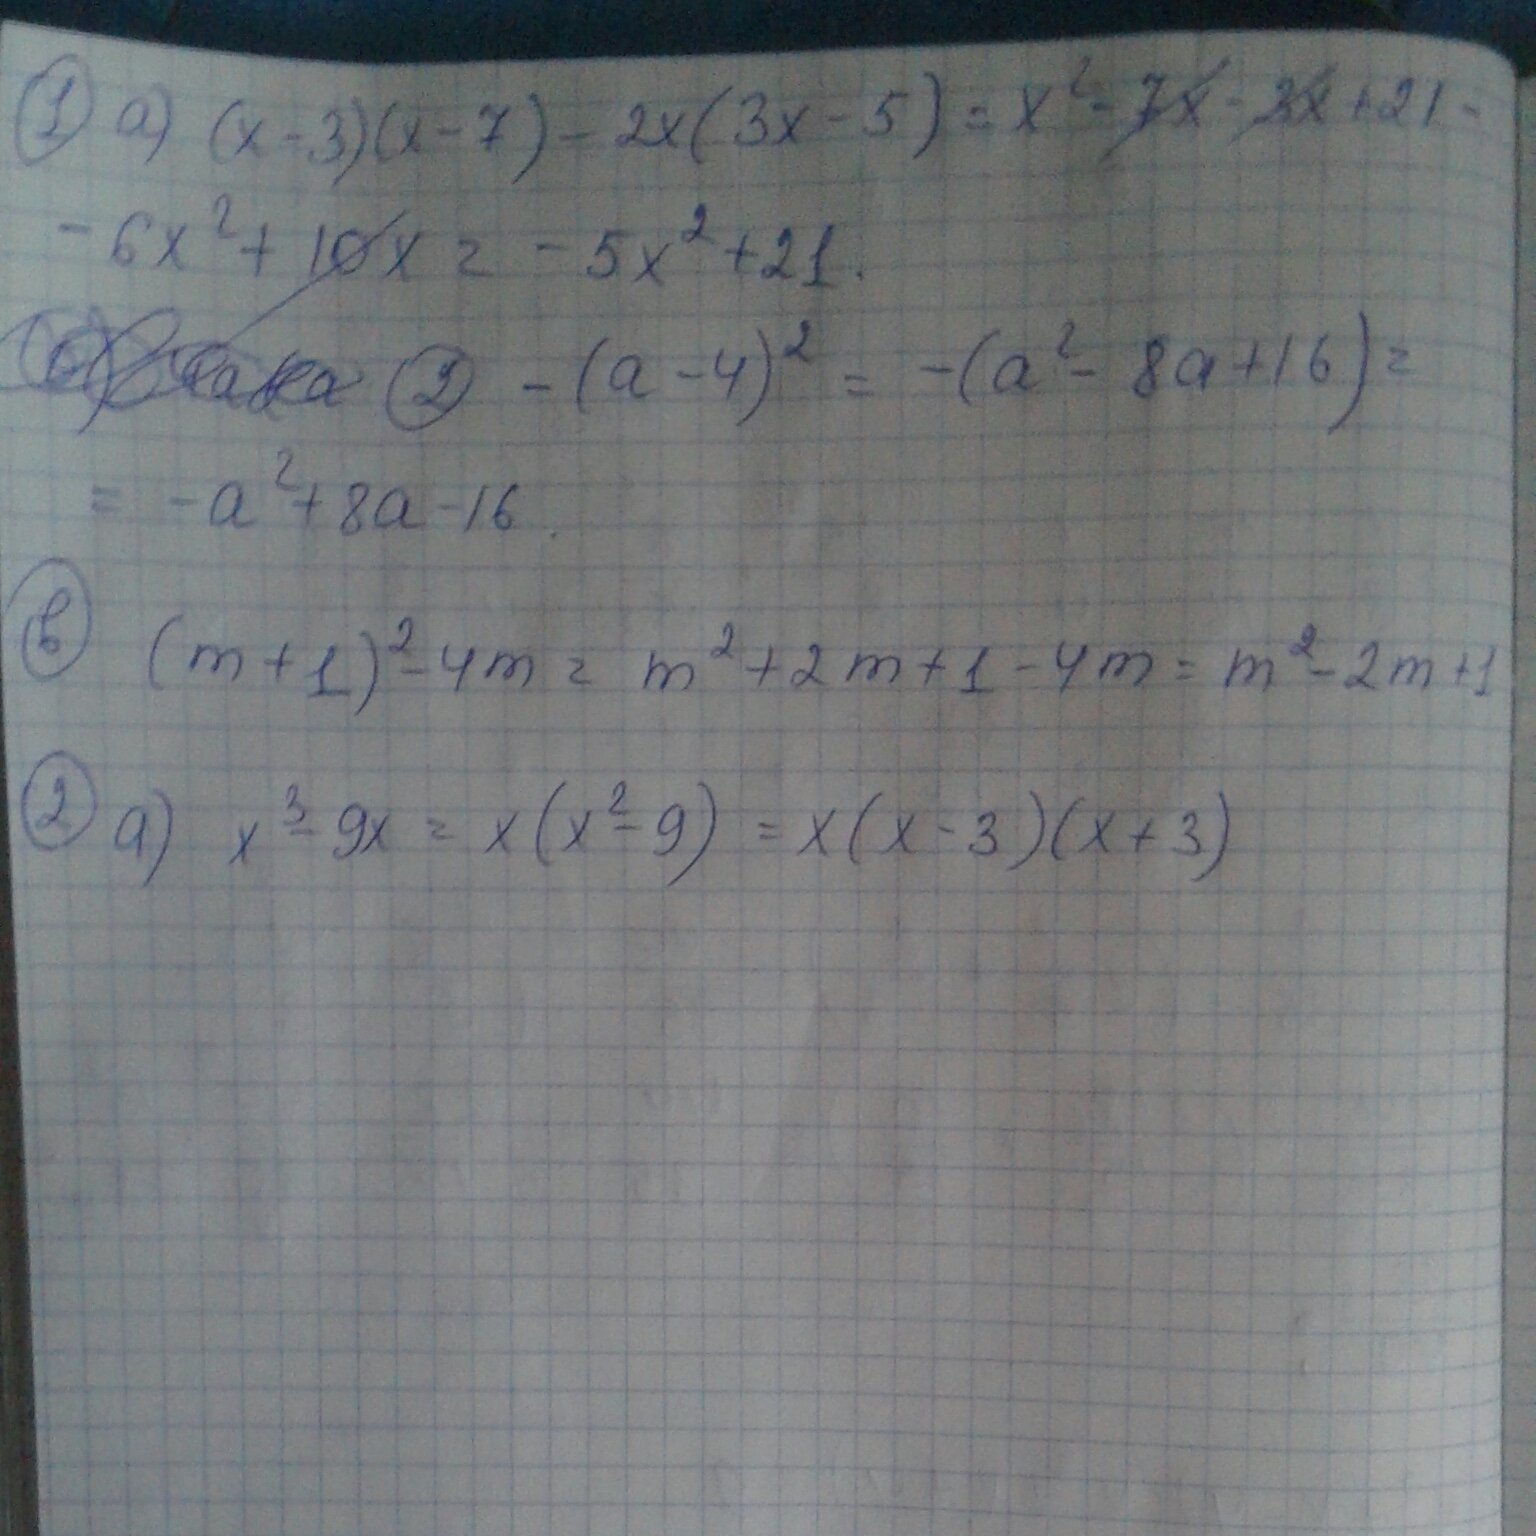 ① а) (x-3)(x-7)-2x(3x-5)=x²-7x-3x+21-
-6x²+10x=-5x²+21.
② -(a-4)²=-(a²-8a+16)=
=-a²+8a-16.
в (m+1)²-4m=m²+2m+1-4m=m²-2m+1
② а) x³-9x=x(x²-9)=x(x-3)(x+3)